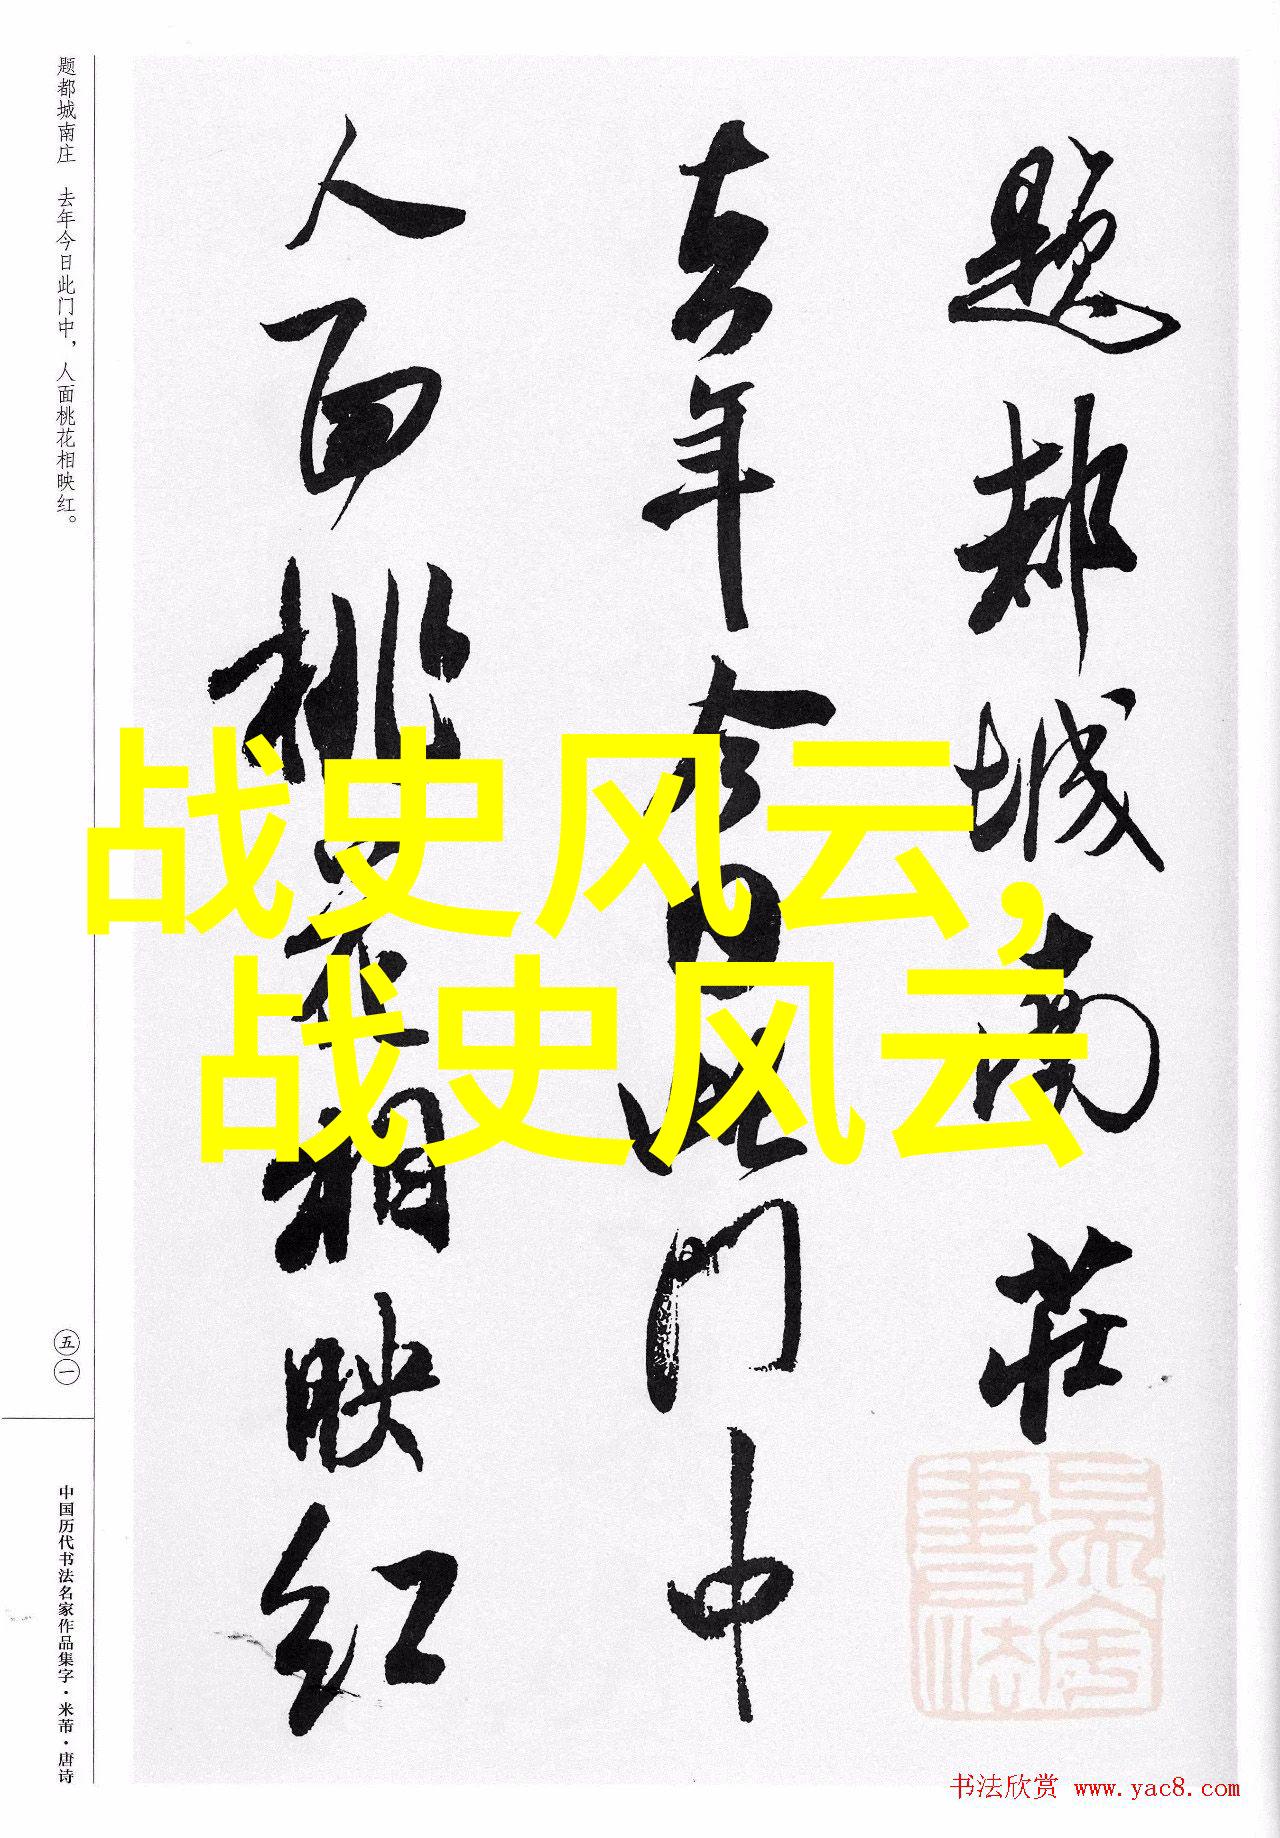 题都城南庄　去年今日此门中，人面桃花相映红。
五一
中国历代书法名家作品集字·米芾·唐诗
題都城南莊
去年今日此門中
人面桃花相映红
战史风云,
战史风云
吴舍書法
书法欣赏 www.yac8.com